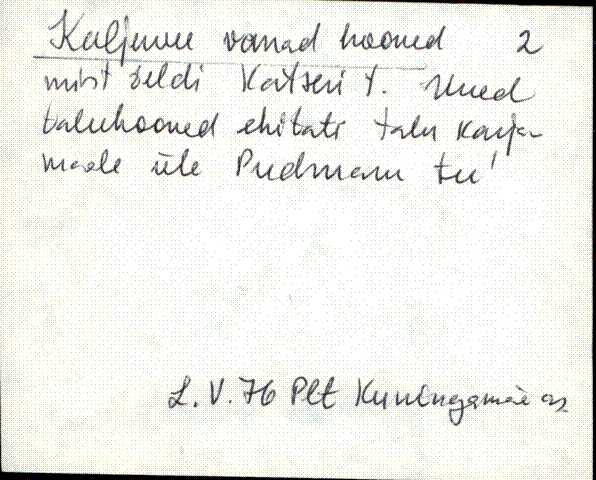 Kaljuvee vanad hooned 2
mist öeldi Katseri t. Uued
taluhooned ehitati talu karja-
maale üle Pudmanu tee!
L. V. 76 Plt Kuningamäe as